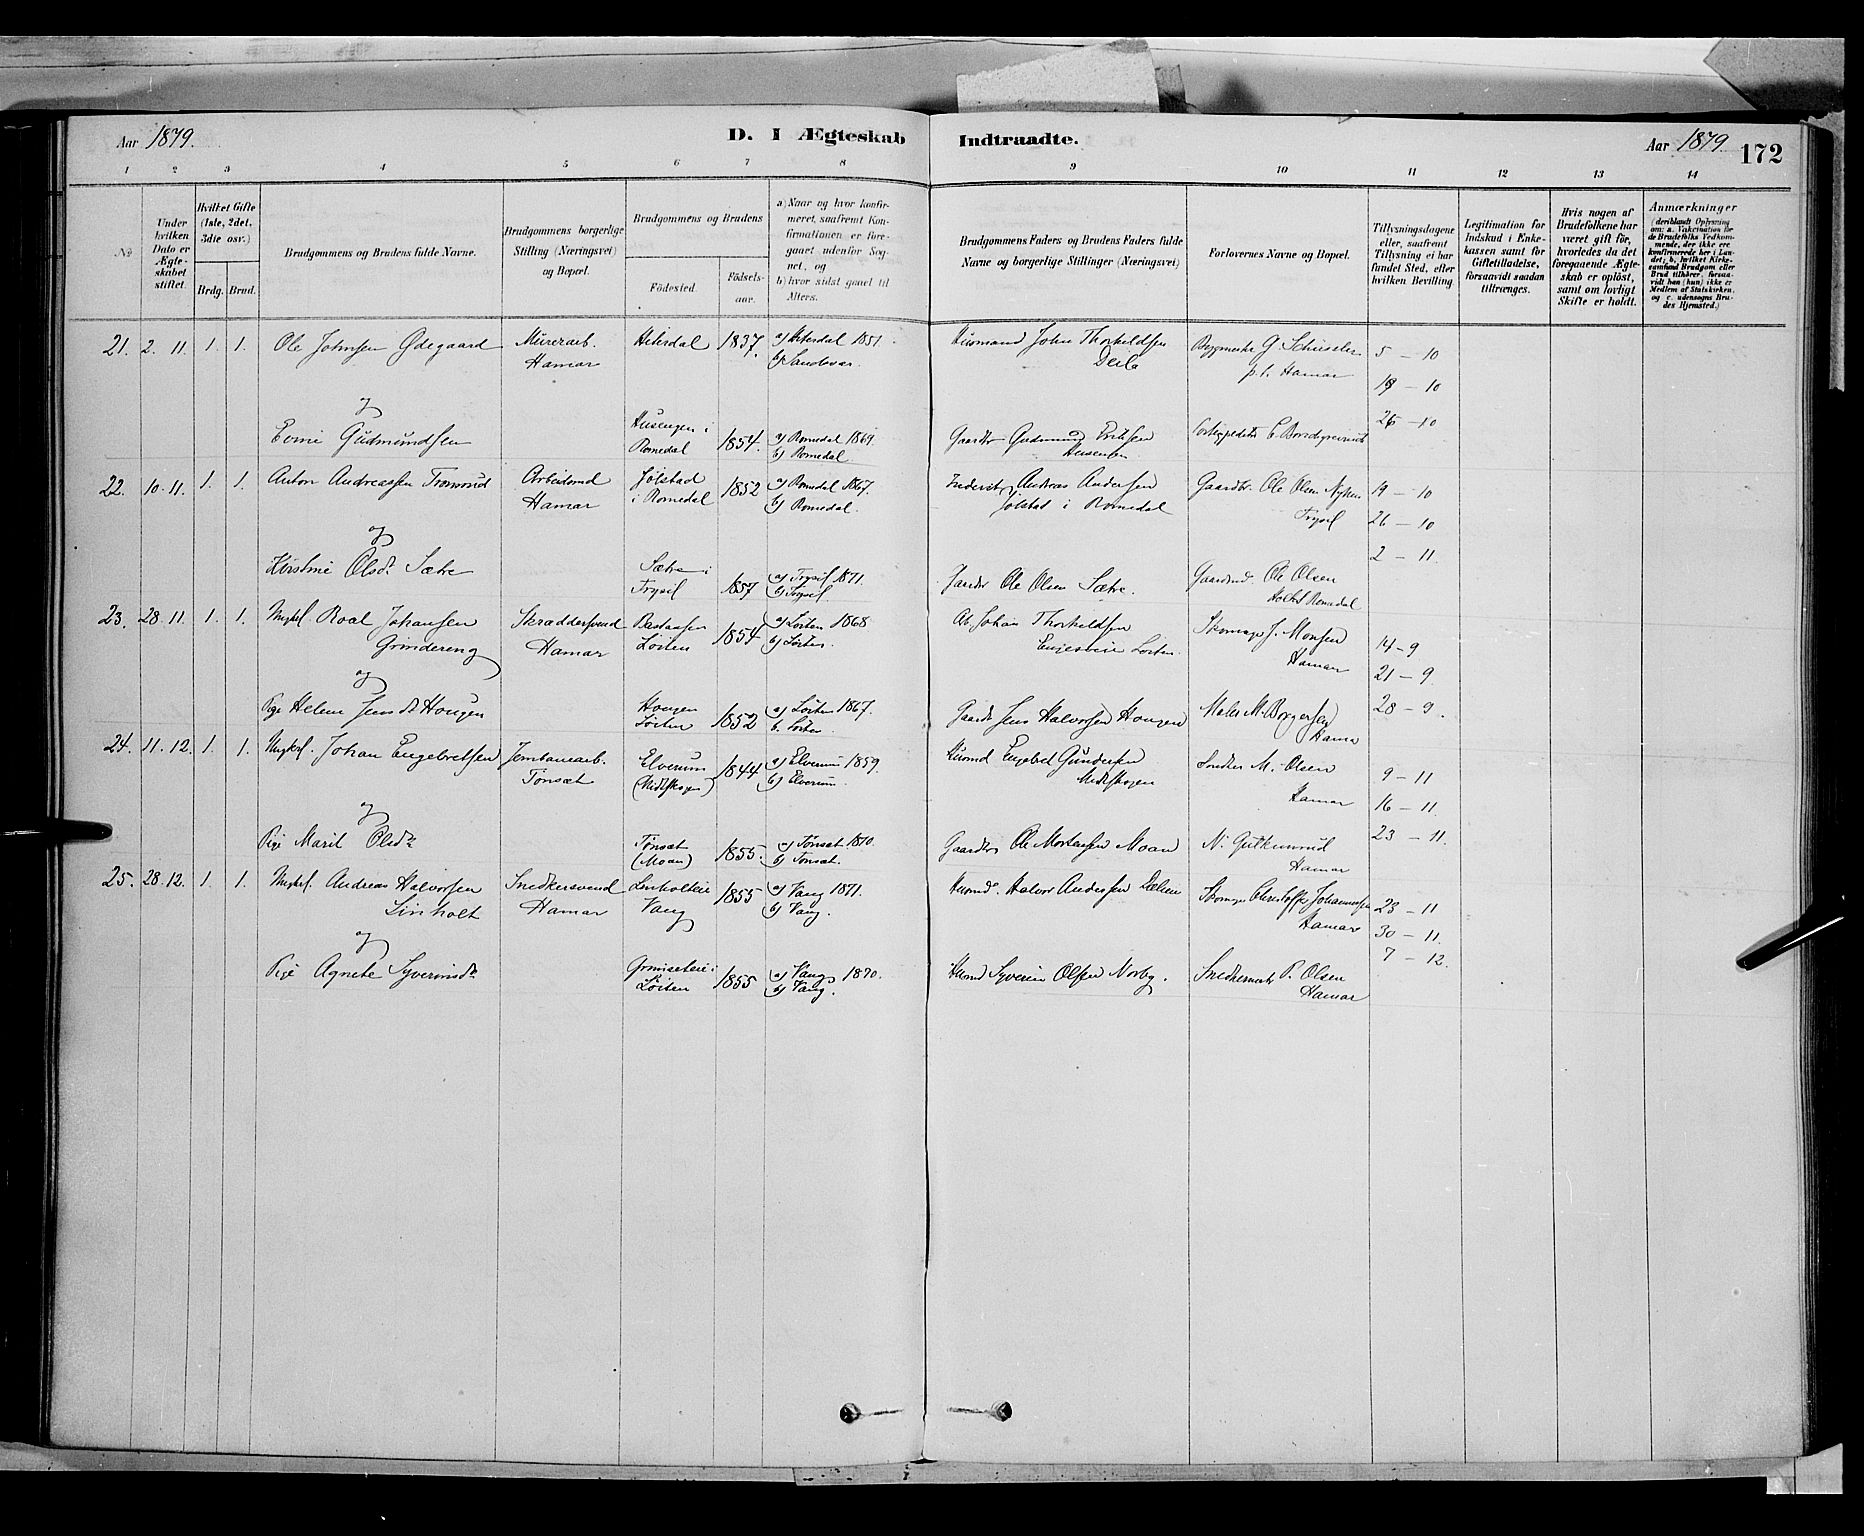 Aar 1879.
D. I Ægteskab Indtraadte.
Aar 1879. 172
1 2 3 4 5 6 7 8 9 10 11 12 13 14
No
Under hvilken Dato er Ægteskabet stiftet.
Hvilket Gifte (1ste, 2det, 3die osv.)
Brdg. Brud.
Brudgommens og Brudens fulde Navne.
Brudgommens borgerlige Stilling (Næringsvei) og Bopæl.
Brudgommens og Brudens
Fødested.
Fødselsaar.
a) Naar og hvor konfirmeret, saafremt Konfirmationen er foregaaet udenfor Sognet, og
b) hvor sidst gaaet til Alters.
Brudgommens Faders og Brudens Faders fulde Navne og borgerlige Stillinger (Næringsvei)
Forlovernes Navne og Bopæl.
Tillysningsdagene eller, saafremt Tillysning ei har fundet Sted, efter hvilken Bevilling.
Legitimation for Indskud i Enkekassen samt for Giftetilladelse, forsaavidt saadan tiltrænges.
Hvis nogen af Brudefolkene har været gift før, hvorledes da det foregaaende Ægteskab er opløst, samt om lovligt Skifte er holdt.
Anmærkninger (deriblandt Oplysning om: a. Vakcination for de Brudefolks Vedkommende, der ikke ere konfirmerede her i Landet; b. hvilket Kirkesamfund Brudgom eller Brud tilhører, forsaavidt han (hun) ikke er Medlem af Statskirken, og c. udensogns Brudes Hjemsted.)
21. 2. 11. 1. 1. Ole Johnsen Ødegaard Murerarb. Hamar Hitterdal 1837. a) Hitterdal 1851. b) Sandsvær. Husmand John Thorkeldsen Bygmester G. Schüssler p.t. Hamar 5 – 10
19 – 10
26 – 10
og
Gudmundsen Husengen i Romedal 1854. a) Romedal 1869. b) Romedal. Gaardbr. Gudmund Eriksen Husengen
22. 10. 11. 1. 1. Anton Andreassen Tromsrud Arbeidsmd Hamar Jølstad i Romedal 1852 a) Romedal 1867. b) Romedal. Inderst Andreas Andersen Jølstad i Romedal Gaardbr. Ole Olsen Nyhus Trysil 19 – 10
26 – 10
2 – 11.
og
Kirstine Olsdr. Sætre Sætre i Trysil 1857 a) Trysil 1871. b) Trysil. Gaardbr Ole Olsen Sætre. Gaardmd. Ole Olsen Romedal
23. 28. 11. 1. 1. Ungkl. Roal Johansen Grindereng Skræddersvend Hamar Løiten 1854 a) Løiten 1868 b) Løiten. Johan Thorkeldsen Løiten. Skomager J. Monsen Hamar 14 – 9
21 – 9.
28 – 9.
og
Pige Helene Jensdr. Hougen Hougen Løiten 1852 a) Løiten 1867. b. Løiten Gaardbr Jens Halvorsen Hougen Maler M. Borgersen Hamar
24. 11. 12. 1. 1. Ungkl. Johan Engebretsen Jernbanearb. Tønsæt Elverum (Midtskogen) 1844 a) Elverum 1859. b) Elverum. Husmd Engebret Gundersen Midtskogen Snedker M. Olsen Hamar 9 – 11
16 – 11.
23 – 11.
og
Pige Marit Olsdr. Tønsæt (Moan) 1855. a) Tønsæt 1870. b) Tønsæt. Gaardbr Ole Mortensen Moan N. Gulkunrud Hamar
25. 28. 12. 1. 1. Ungkl. Andreas Halvorsen Linholt Snedkersvend Hamar Linholteie Vang 1855 a) Vang 1871. b) Vang. Husmd. Halvor Andersen Skomager Christoffer Johannesen Hamar 23 – 11
30 – 11.
7 – 12.
og
Pige Agnete Syverinsdr. Grimseteie i Løiten 1855 a) Vang 1870. b) Vang. Husmd Syverin Olsen Norby. Snedkermester P. Olsen Hamar